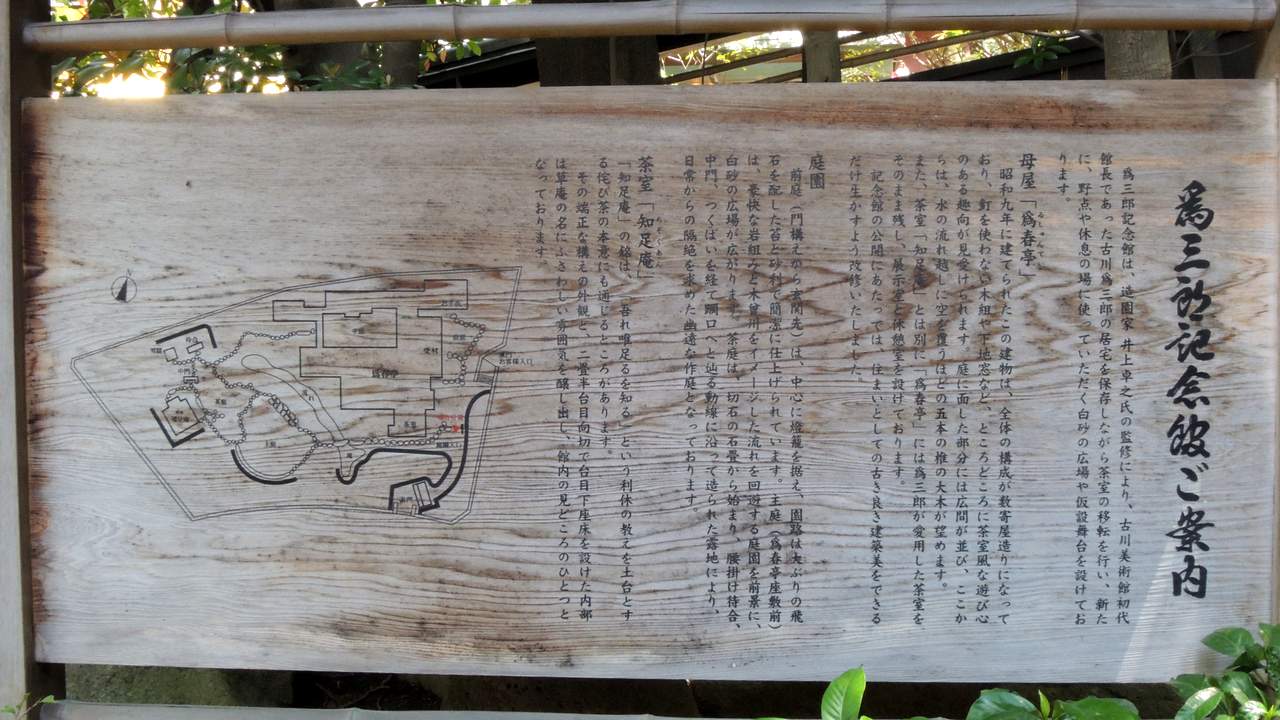 爲三郎記念館ご案内
爲三郎記念館は、造園家 井上卓之氏の監修により、古川美術館初代
館長であった古川爲三郎の居宅を保存しながら茶室の移転を行い、新た
に、野点や休息の場に使っていただく白砂の広場や仮設舞台を設けてお
ります。
母屋「爲春亭」
昭和九年に建てられたこの建物は、全体の構成が数寄屋造りになって
おり、釘を使わない木組や下地窓など、ところどころに茶室風な遊び心
のある趣向が見受けられます。庭に面した部分には広間が並び、ここか
らは、水の流れ越しに空を覆うほどの五本の椎の大木が望めます。
また、茶室「知足庵」とは別に「爲春亭」には爲三郎が愛用した茶室を
そのまま残し、展示室と休憩室を設けております。
記念館の公開にあたっては、住まいとしての古き良き建築美をできる
だけ生かすよう改修いたしました。
庭園
前庭（門構えから玄関先）は、中心に燈籠を据え、園路は大ぶりの飛
石を配した苔と砂利で簡潔に仕上げられています。主庭（爲春亭座敷前）
は、豪快な岩組みと木曾川をイメージした流れを回遊する庭園を前景に、
白砂の広場が広がります。茶庭は、切石の石畳から始まり、腰掛け待合、
中門、つくばいを経て躙口へと辿る動線に沿って造られた露地により、
日常からの隔絶を求めた幽邃な作庭となっております。
茶室「知足庵」
「知足庵」の銘は、「吾れ唯足るを知る」という利休の教えを土台とす
る侘び茶の本意にも通じるところがあります。
その端正な構えの外観と、二畳半台目向切で台目下座床を設けた内部
は草庵の名にふさわしい雰囲気を醸し出し、館内の見どころのひとつと
なっております。
爲春亭